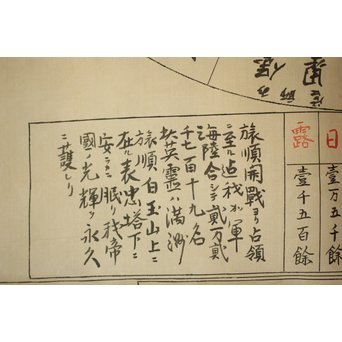 日
壹万五千餘
露
壹千五百餘
旅順開戰ヨリ占領
ニ至ル迠我ガ軍
海陸合シテ貳万貳
千七百十九名
英霊ハ満洲
旅順白玉山上ニ
在ル表忠塔下ニ
安ラカニ眠リ我帝
國ノ光輝ヲ永久
ニ護レリ